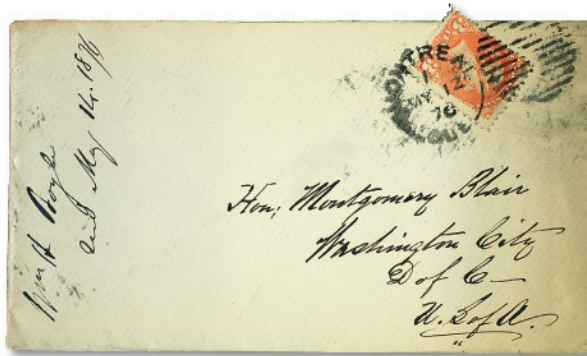 Wm H Boyle
Recd May 14. 1876
MONTREAL
MY 12
76
QUE
Hon; Montgomery Blair
Washington City
D of C—
U. S of A.